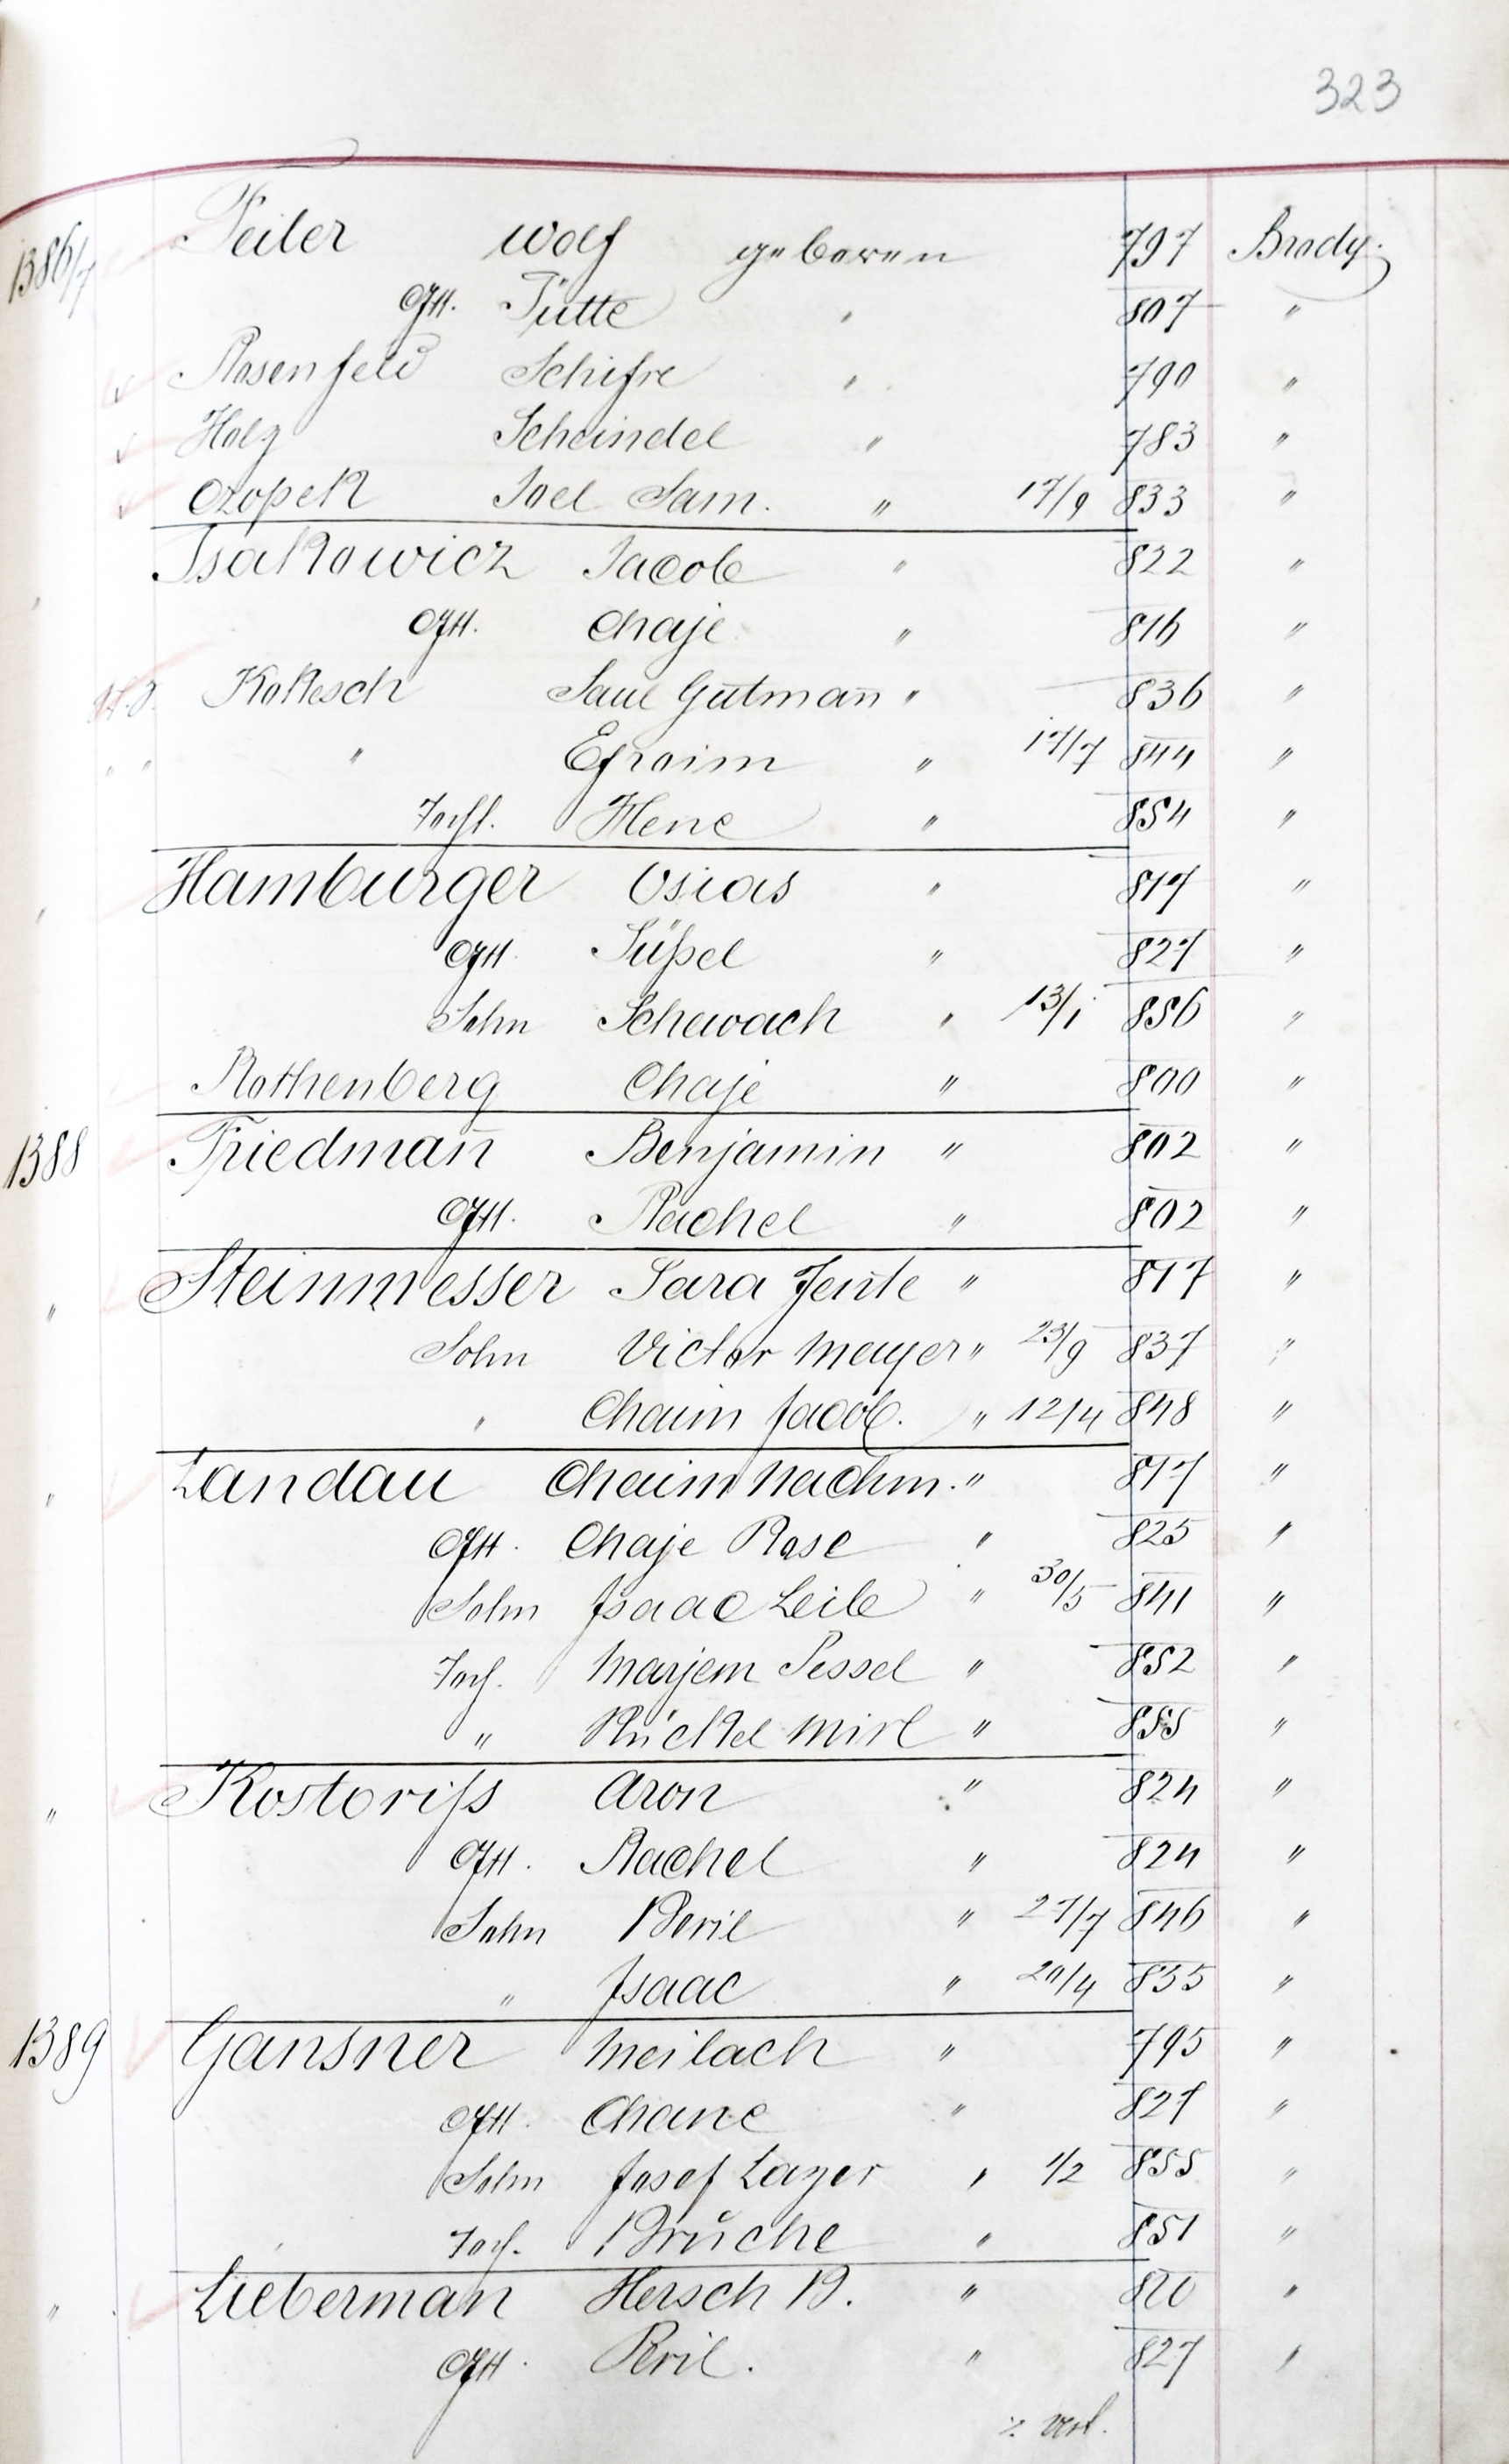 323
1386/7 Feiler Wolf geboren 797 Brody.
Gtt. Jütte " 807 "
Rosenfeld Schifre " 790 "
Holz Scheindel " 783 "
Czopek Joel Sam. " 17/9 833 "
Isakowicz Jacob " 822 "
" Gtt. Chaje " 816 "
Kokesch Saul Gutman̄ " 836 "
" " " Efroim " 17/7 844 "
Tocht. Hene " 854 "
Hamburger Osias " 817 "
" Gtt. Süßel " 827 "
Sohn Schewach " 13/1 856 "
Rothenberg Chaje " 800 "
1388 Friedman̄ Benjamin " 802 "
Gtt. Rachel " 802 "
Steinmesser Sara Jente " 817 "
" Sohn Victor Mayer " 23/9 837 "
" Chaim Jacob. " 12/4 848 "
Landau Chaim Nachm. " 817 "
" Gtt. Chaje Rose " 825 "
Sohn Isaac Leib " 30/5 841 "
Toch. Marjem Pessel " 852 "
" Rückel Mirl " 855 "
Kostoriſs Aron " 824 "
" Gtt. Rachel " 824 "
Sohn Beril " 27/7 846 "
" Isaac " 20/4 855 "
1389 Gansner Meilach " 795 "
Gtt. Chane " 827 "
Sohn Josef Lazer " 1/2 855 "
Toch. Bruche " 851 "
Lieberman Hersch B. " 820 "
" Gtt. Peril. " 827 "